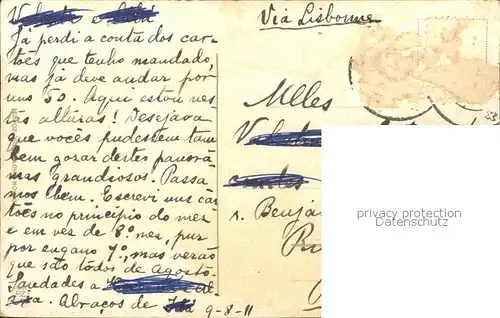 Já perdi a conta dos car-
tões que tenho mandado,
mas já deve andar por
uns 50. Aqui estou nes-
tas alturas! Desejava
que vocês pudessem tam
bem gozar destes panora
mas grandiosos. Passa
mos bem. Escrevi uns car
tões no principio do mez
e em vez de 8.º mez, puz
por engano 7.º, mas verão
que são tôdos de Agosto.
Saudades a
Abraços de
9-8-11
Via Lisbonne
Mlles
r. Benja
privacy protection
Datenschutz